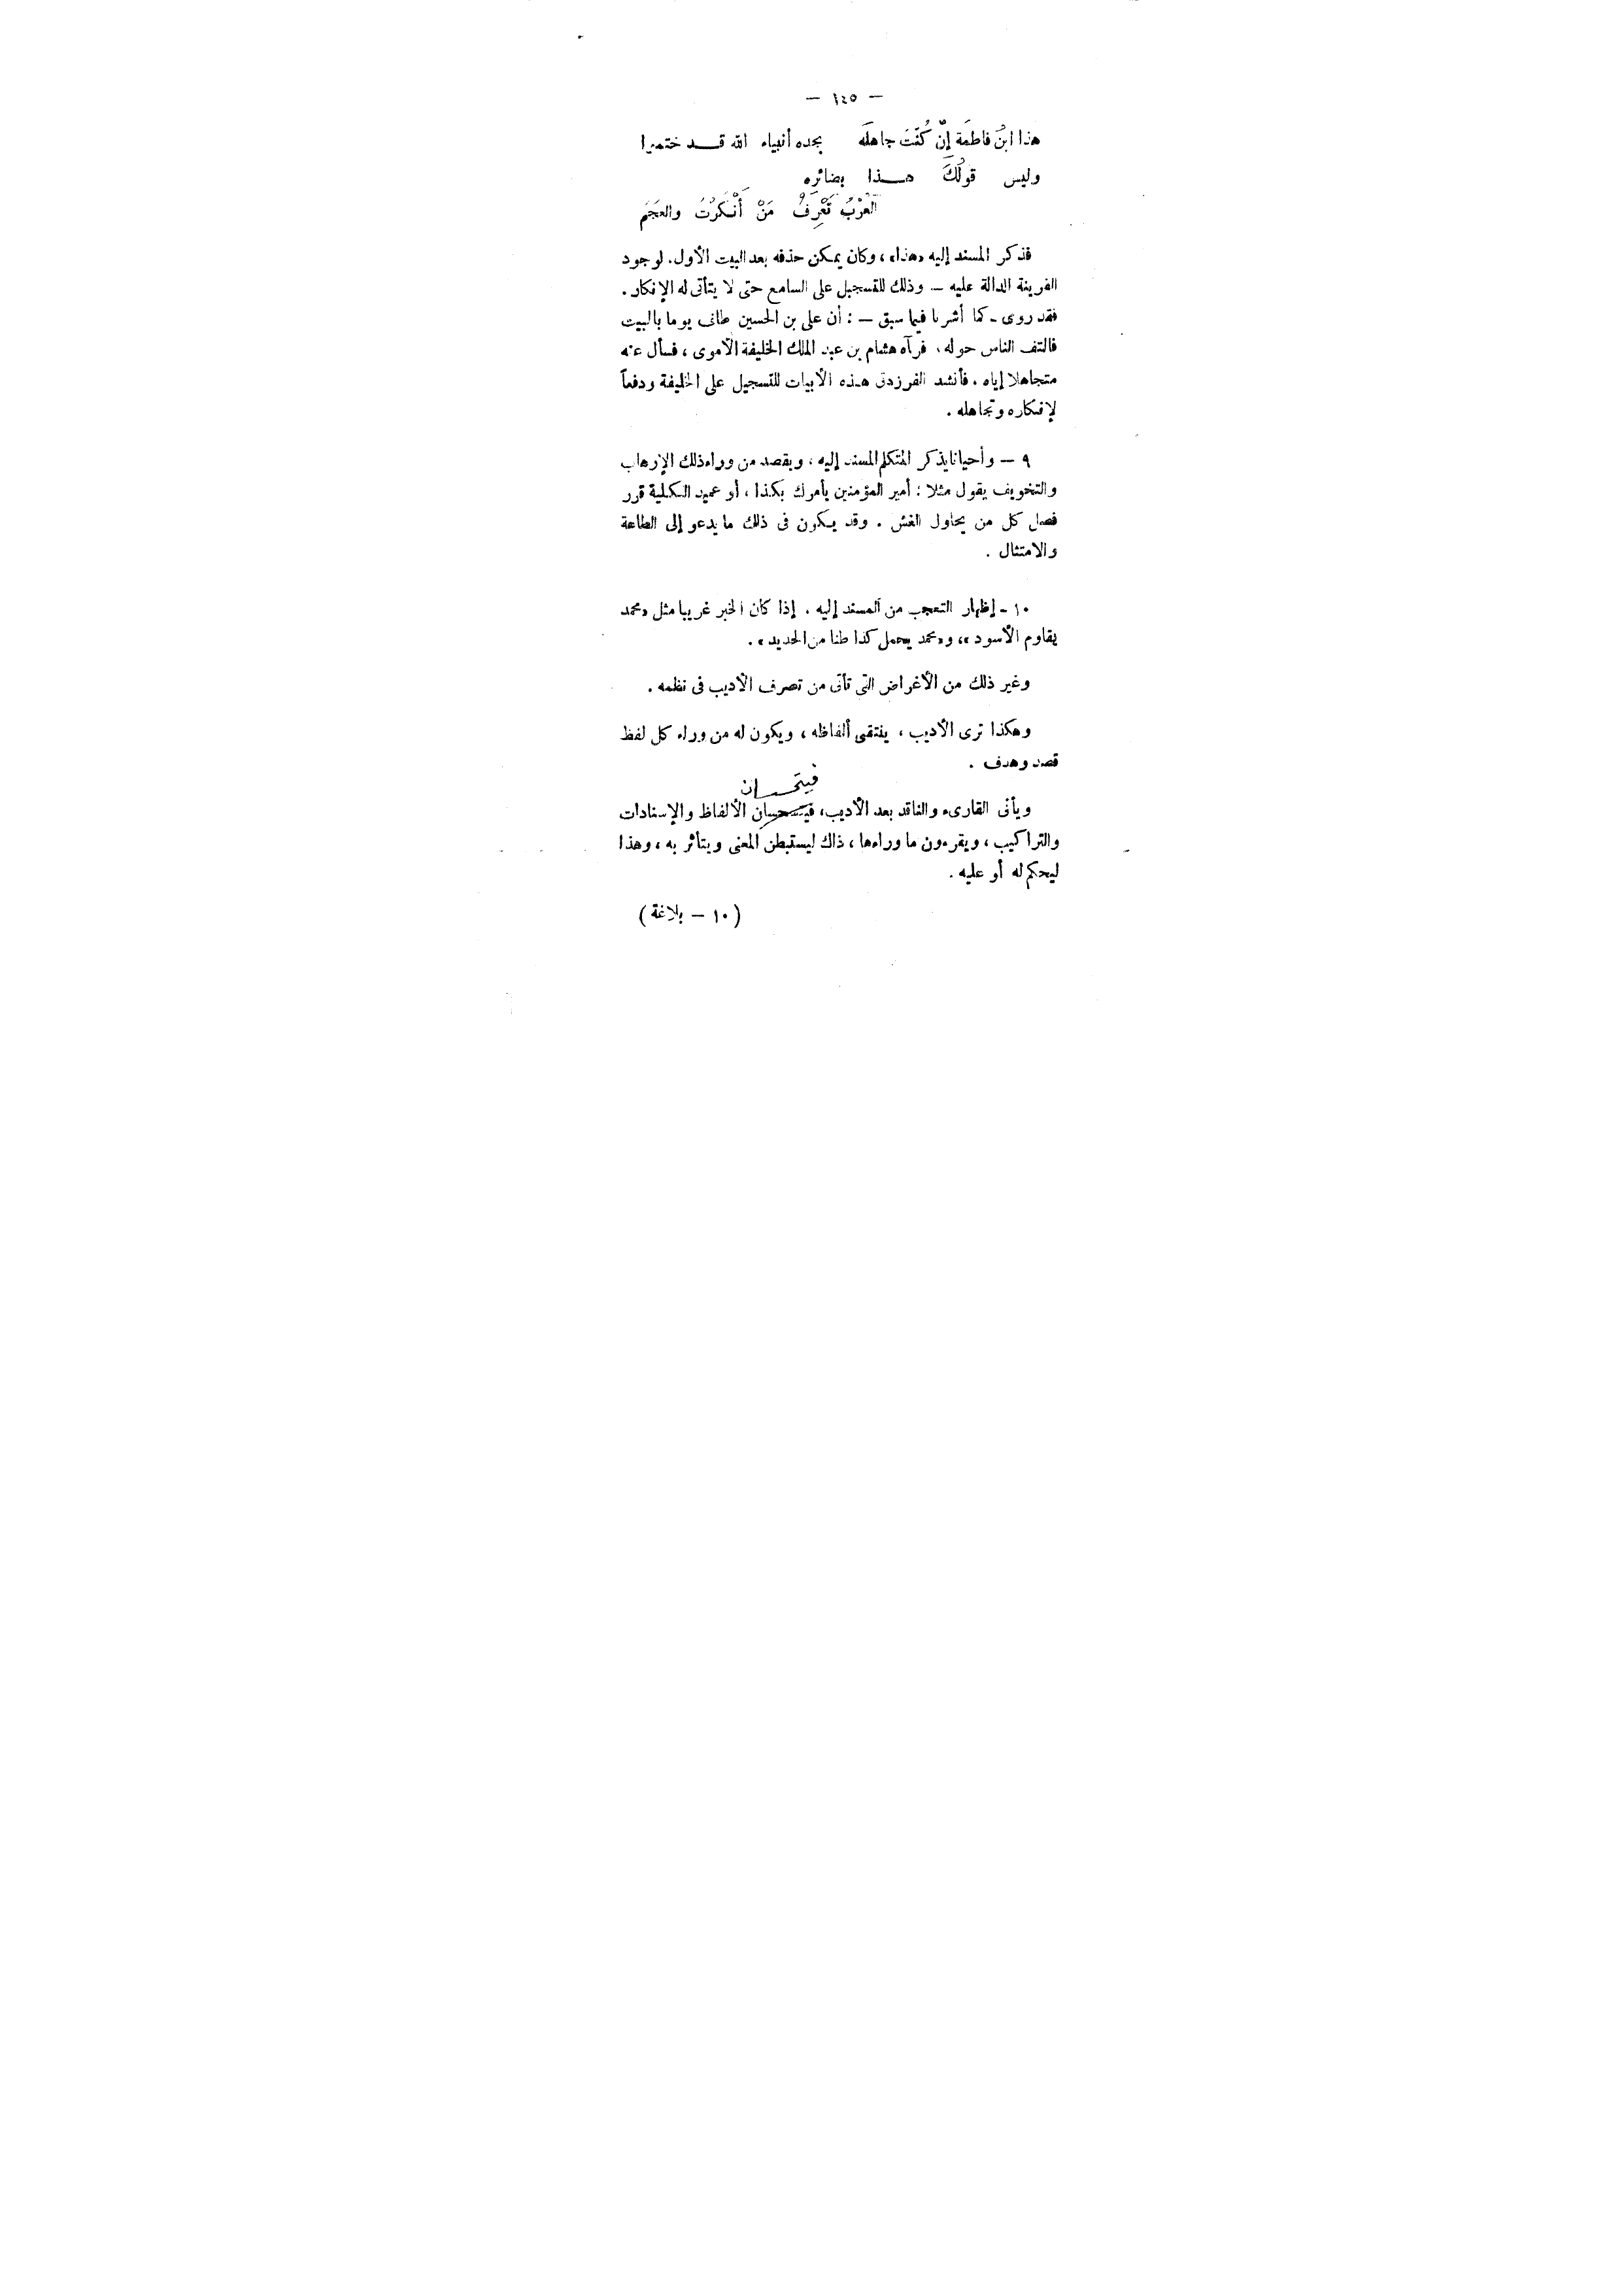 — ١٤٥ —
هذا ابنُ فاطمَة إنْ كُنْتَ جاهلَه بجده أنبياء الله قـــد ختموا
وليس قولُكَ هـــذا بضائرِه
العُرْبُ تَعْرِفُ مَنْ أَنْكَرْتَ والعَجَم
فذكر المسند إليه «هذا»، وكان يمكن حذفه بعد البيت الأول. لوجود
القرينة الدالة عليه — وذلك للتسجيل على السامع حتى لا يتأتى له الإنكار.
فقد روى - كما أشرنا فيما سبق — : أن على بن الحسين طاف يوما بالبيت
فالتف الناس حوله، فرآه هشام بن عبد الملك الخليفة الأموى، فسأل عنه
متجاهلا إياه. فأنشد الفرزدق هذه الأبيات للتسجيل على الخليفة ودفعاً
لإنكاره وتجاهله.
٩ — وأحيانا يذكر المتكلم المسند إليه، ويقصد من وراء ذلك الإرهاب
والتخويف يقول مثلا : أمير المؤمنين يأمرك بكذا، أو عميد الكلية قرر
فصل كل من يحاول الغش. وقد يكون فى ذلك ما يدعو إلى الطاعة
والامتثال.
١٠ - إظهار التعجب من المسند إليه. إذا كان الخبر غريبا مثل «محمد
يقاوم الأسود»، و«محمد يحمل كذا طنا من الحديد».
وغير ذلك من الأغراض التى تأتى من تصرف الأديب فى نظمه.
وهكذا ترى الأديب، ينتقى ألفاظه، ويكون له من وراء كل لفظ
قصد وهدف.
ويأتى القارىء والناقد بعد الأديب، الألفاظ والإسنادات
والتراكيب، ويقرءون ما وراءها، ذاك ليستبطن المعنى ويتأثر به، وهذا
ليحكم له أو عليه.
(١٠ — بلاغة)